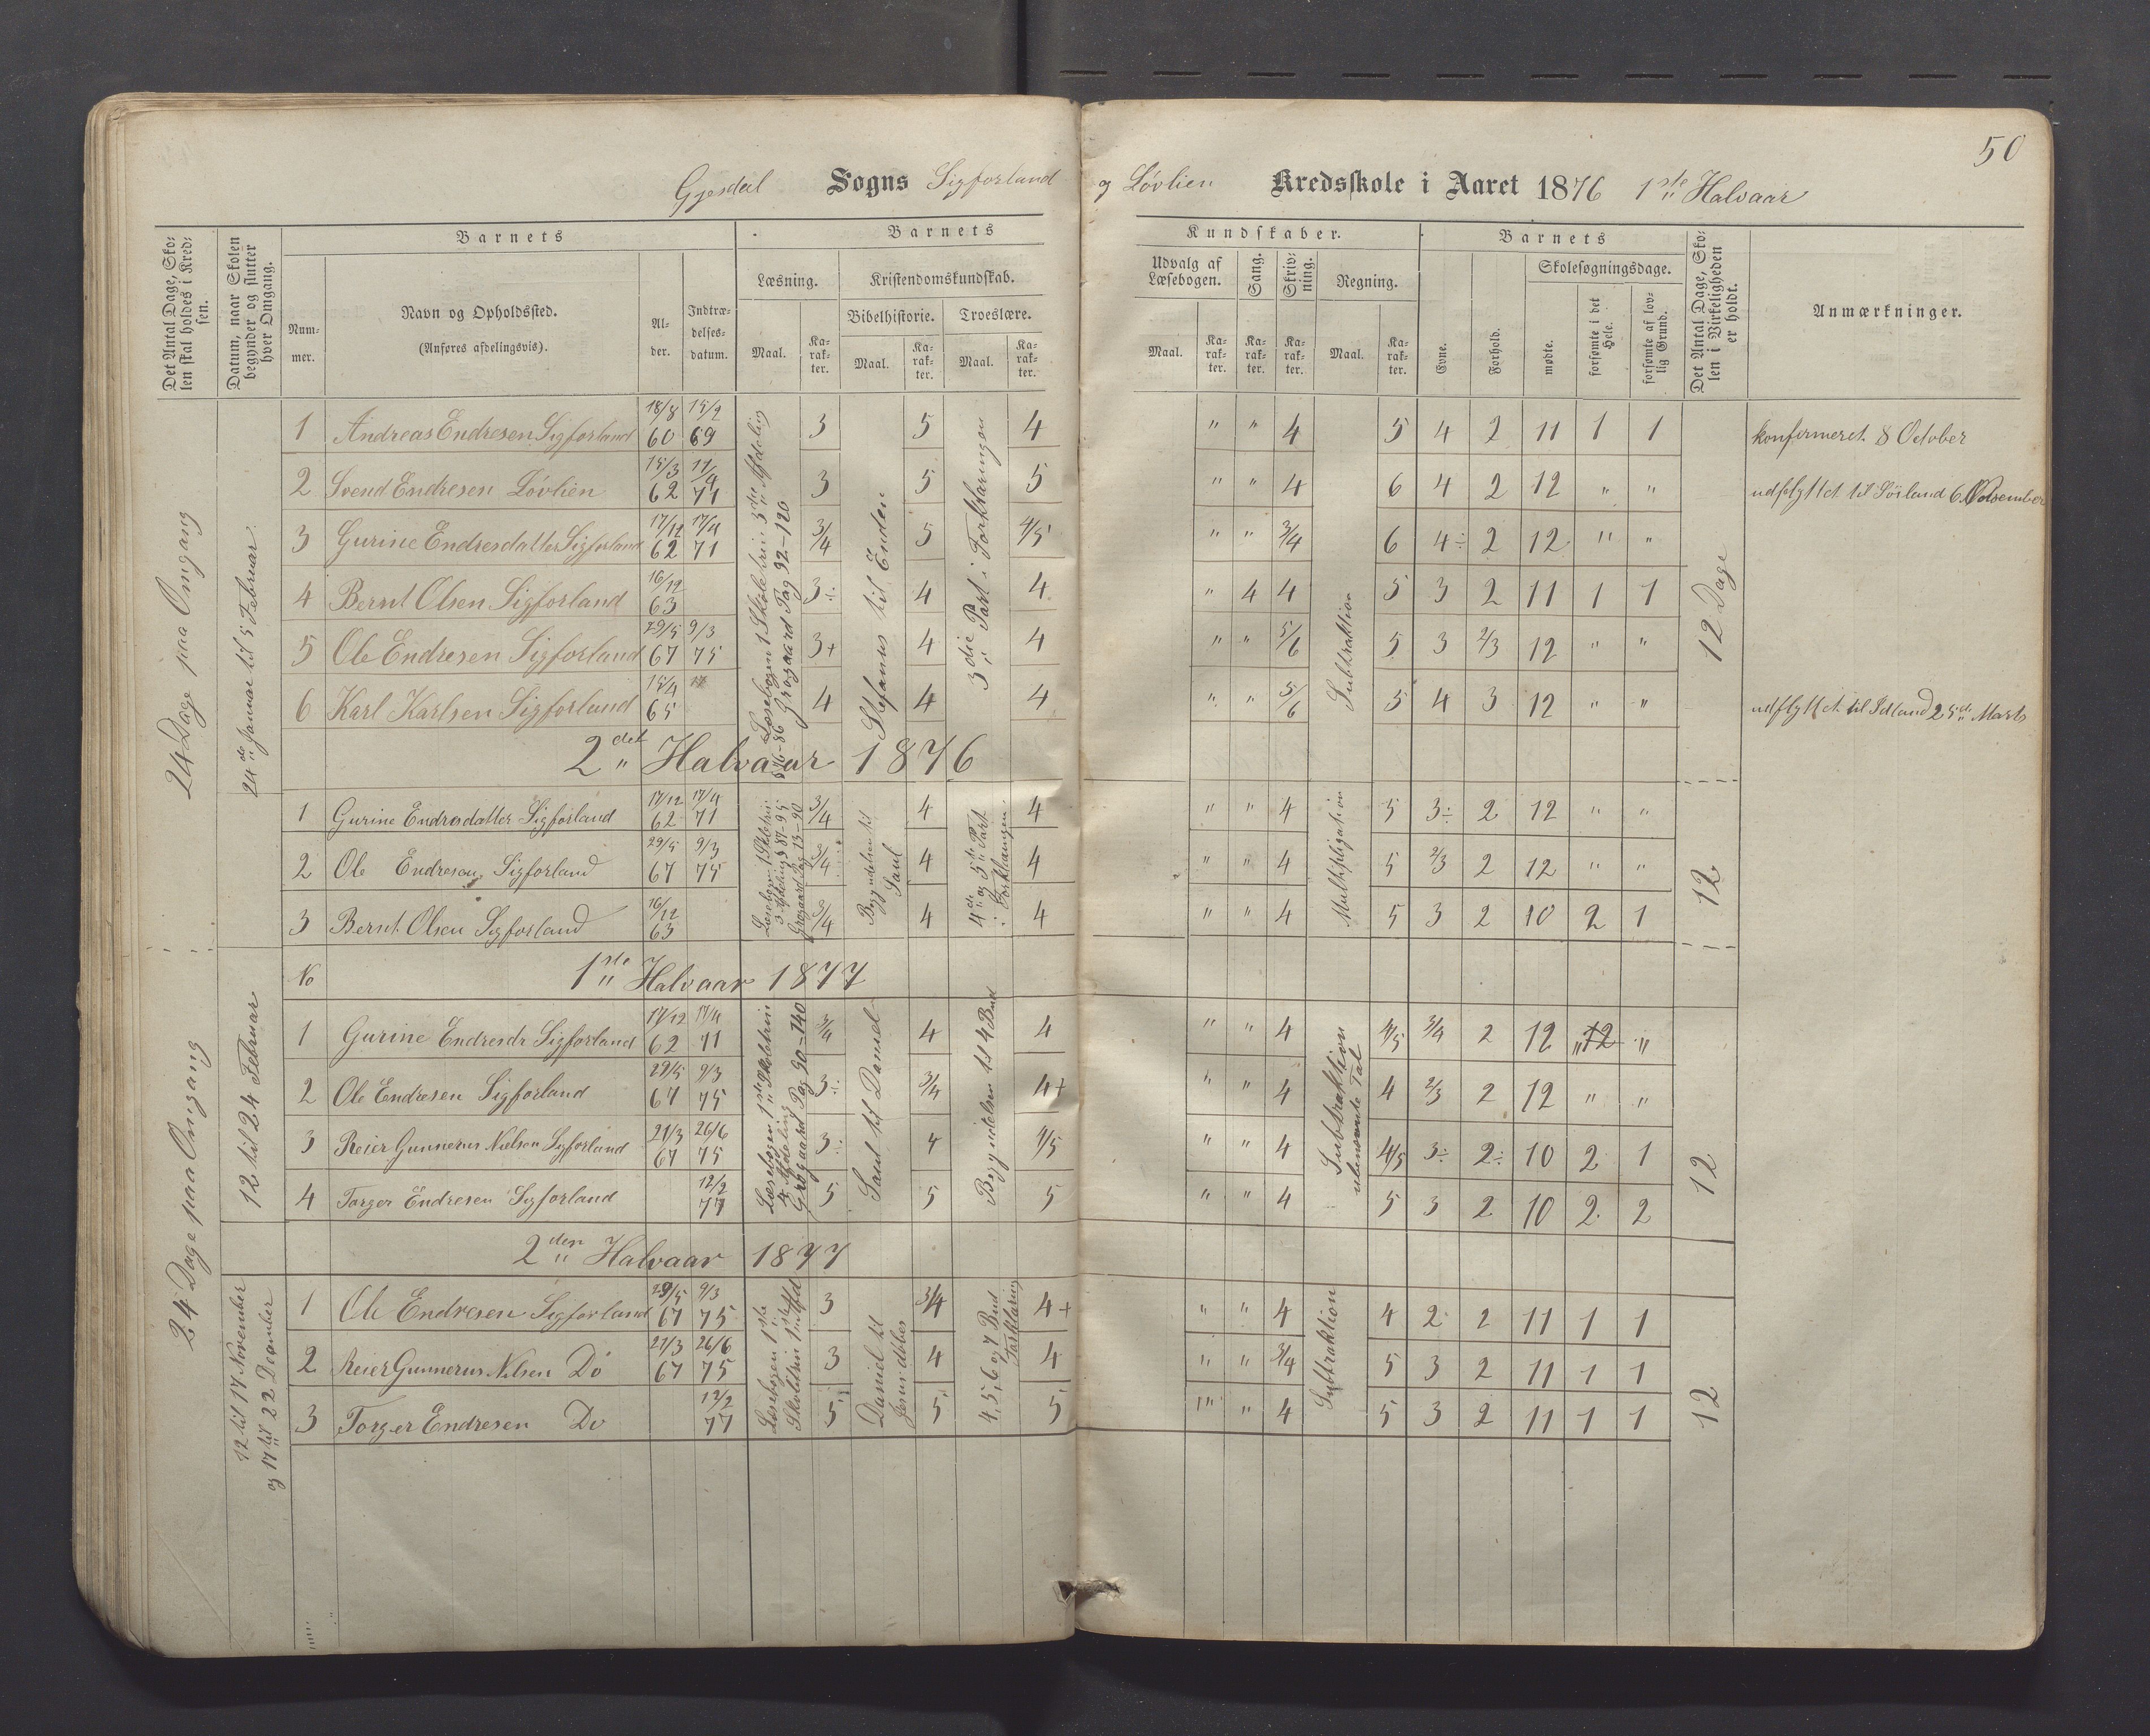 50
Gjesdal Sogns Sigforland og Løvlien Kredsskole i Aaret 1876 1ste Halvaar
Det Antal Dage, Skolen skal holdes i Kredsen.
Datum, naar Skolen begynder og slutter hver Omgang.
Barnets
Nummer.
Navn og Opholdssted.
(Anføres afdelingsvis).
Alder.
Indtrædelsesdatum.
Barnets
Læsning.
Maal.
Karakter.
Kristendomskundskab.
Bibelhistorie.
Maal.
Karakter.
Troeslære.
Maal.
Karakter.
Kundskaber.
Udvalg af Læsebogen.
Maal.
Karakter.
Sang.
Karakter.
Skrivning.
Karakter.
Regning.
Maal.
Karakter.
Barnets
Evne.
Forhold.
Skolesøgningsdage.
mødte.
forsømte i det Hele.
forsømte af lovlig Grund.
Det Antal Dage, Skolen i Virkeligheden er holdt.
Anmærkninger.
24 Dage paa Omgang
24de Januar til 5 Februar
Læsebogen 1 Skoletrin 3die Afdeling
§ 76-86 Grøgaard Pag 92-120
Stefanus til Enden
3die Part i Forklaringen
Subtraktion
12 Dage
1 Andreas Endresen Sigforland 18/8 60 15/2 69 3 5 4 " " 4 5 4 2 11 1 1 konfirmeret 8 October
2 Svend Endresen Løvlien 15/3 62 3 5 5 " " 4 6 4 2 12 " " udflyttet til Sörland 6 November
3 Gurine Endresdatter Sigforland 17/12 62 17/4 71 3/4 5 4/5 " " 3/4 6 4÷ 2 12 " "
4 Bernt Olsen Sigforland 16/12 63 3÷ 4 4 " 4 4 5 3 2 11 1 1
5 Ole Endresen Sigforland 29/5 67 9/3 75 3+ 4 4 " " 5/6 5 3 2/3 12 " "
6 Karl Karlsen Sigforland 15/4 65 4 4 4 " " 5/6 5 4 3 12 " " udflyttet til 25de Marts
2det Halvaar 1876
Læsebogen 1 Skoletrin
3 Afdeling § 87-95
Grøgaard Pag 13-90
Begyndelsen til
Saul
4de og 5te Part
i Forklaringen
Multipligation
12
1 Gurine Endresdatter Sigforland 17/12 62 17/4 71 3/4 4 4 " " 4 5 3÷ 2 12 " "
2 Ole Endresen Sigforland 29/5 67 9/3 75 3/4 4 4 " " 4 5 2/3 2 12 " "
3 Bernt Olsen Sigforland 16/12 63 3/4 4 4 " " 4 5 3 2 10 2 1
No 1ste Halvaar 1877
24 Dage paa Omgang
12 til 24 Februar
Læsebogen 1ste Skoletrin
4 Afdeling
Grøgaard Pag 90-140
Saul til Daniel
Begyndelsen til 4 Bud
Subtraktion
ubenævnte Tal
12
1 Gurine Endresdr Sigforland 17/12 62 17/4 71 3/4 4 4 " " 4 4/5 3/4 2 12 " 12 "
2 Ole Endresen Sigforland 29/5 67 9/3 75 3÷ 3/4 4+ " " 4 4 2/3 2 12 " "
3 Reier Gunnerus Nielsen Sigforland 21/3 67 26/6 75 3÷ 4 4/5 " " 4 4/5 3÷ 2÷ 10 2 1
4 Torger Endresen Sigforland 12/2 77 5 5 5 " " 4 5 3 2 10 2 2
2den Halvaar 1877
12 til 17 November
og 17 til 22 December
Læsebogen 1ste
Skoletrin 1ste Afd
Daniel til
Jesu
4, 5, 6 og 7 Bud
Forklaring
Subtraktion
12
1 Ole Endresen Sigforland 29/5 67 9/3 75 3 3/4 4+ " " 4 4 2 2 11 1 1
2 Reier Gunnerus Nilsen Do 21/3 67 26/6 75 3 4 4 " " 3/4 5 3 2 11 1 1
3 Torger Endresen Do 12/2 77 5 5 5 " " 4 5 3 2 11 1 1